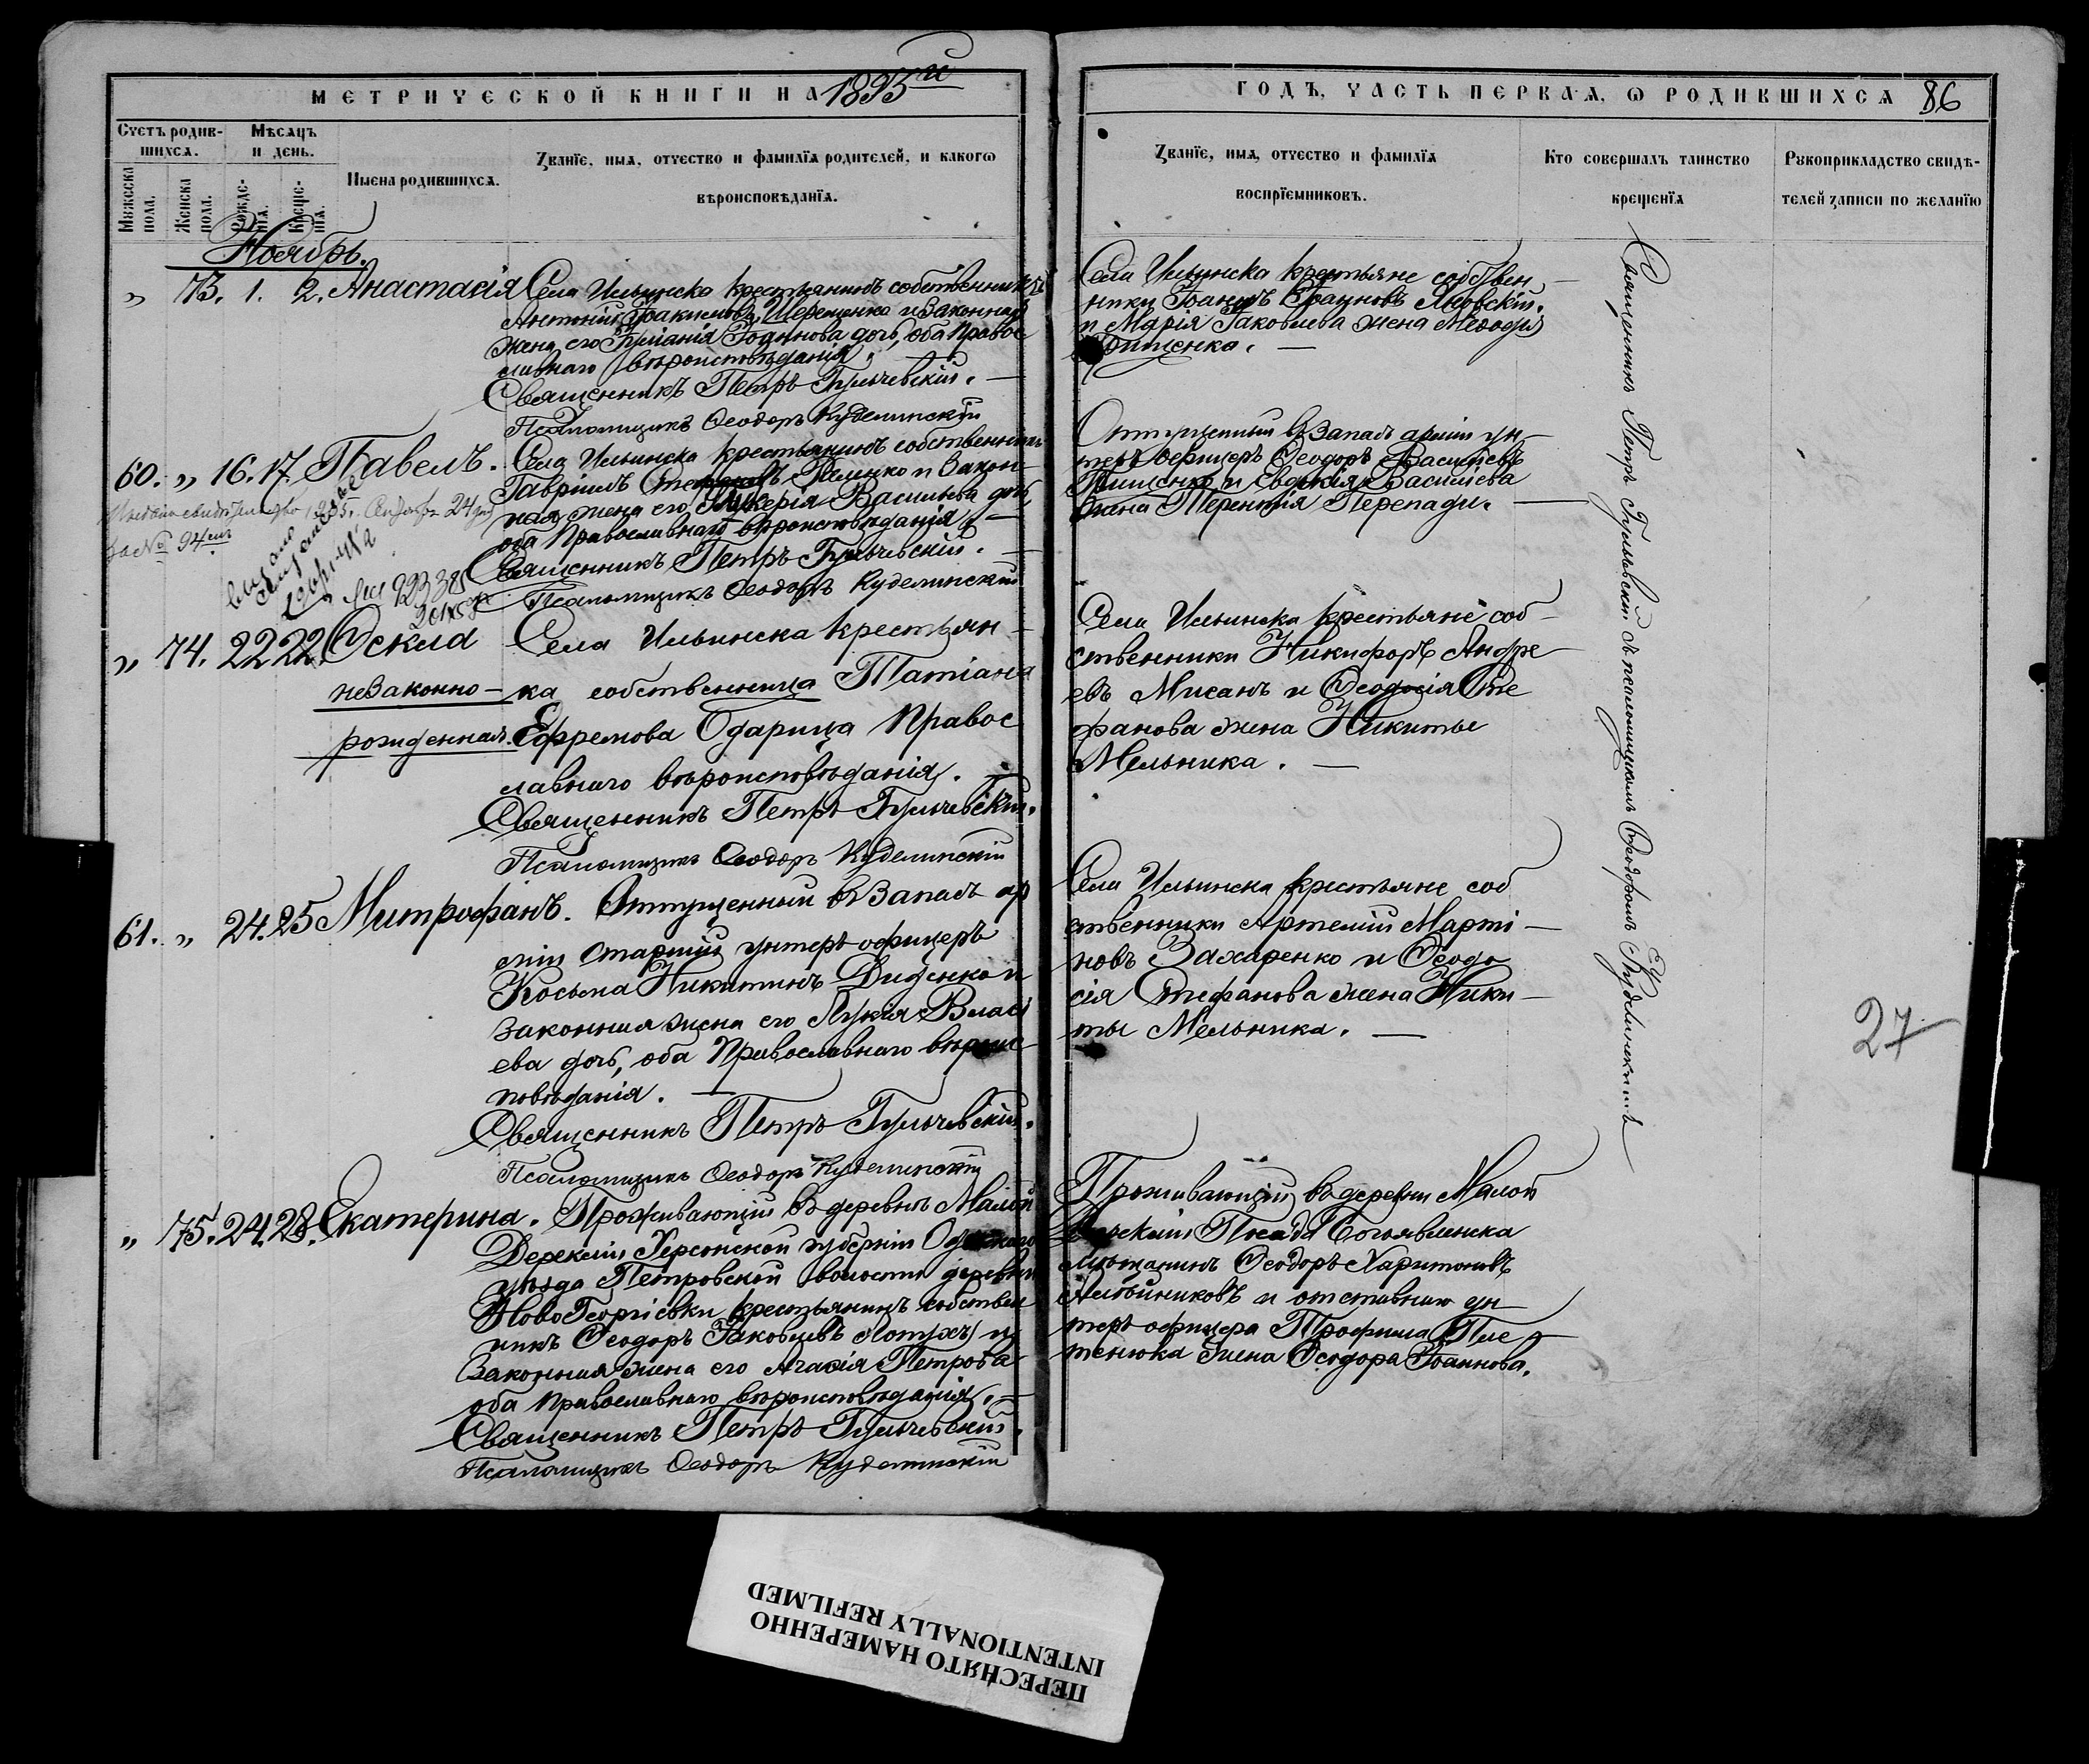 МЕТРИЧЕСКОЙ КНИГИ НА 1895й
ГОДЪ, ЧАСТЬ ПЕРВАЯ, Ѡ РОДИВШИХСЯ 86
Счетъ родив-
шихся.
Мѣсяцъ
и день.
Мужеска
пола.
Женска
пола.
Рожде-
нія.
Креще-
нія.
Имена родившихся.
Званіе, имя, отчество и фамилія родителей, и какогѡ
вѣроисповѣданія.
Званіе, имя, отчество и фамилія
воспріемниковъ.
Кто совершалъ таинство
крещенія
Рукоприкладство свидѣ-
телей записи по желанію
Ноябрь.
" 73. 1. 2. Анастасія
Села Ильинска крестьянинъ собственникъ
Антоній Іоакимовъ Шерещенко и законная
жена его Іуліанія Іоаннова дочь, оба Правос
лавнаго вѣроисповѣданія.
Священникъ Петръ Гульчевскій.
Псаломщикъ Ѳеодоръ Куделинскій
Села Ильинска крестьяне собствен-
ники Іоаннъ Іоанновъ Яновскій
и Марія Іаковлева жена Меѳодія
Грищенка.
60. " 16. 17. Павелъ.
за № 94
выдано
Села Ильинска крестьянинъ собственникъ
Гавріилъ и закон-
ная жена его Гликерія Васильева дочь
оба Православнаго вѣроисповѣданія
Священникъ Петръ Гульчевскій.
Псаломщикъ Ѳеодоръ Куделинскій
Отпущенный въ запасъ арміи ун-
теръ офицеръ Ѳеодоръ Васильевъ
и Евдокія Васильева
жена Терентія Перепади.
" 74. 22 22. Ѳекла
незаконно-
рожденная.
Села Ильинска крестьян-
ка собственница Татіана
Ефремова Одарица Правос
лавнаго вѣроисповѣданія.
Священникъ Петръ Гульчевскій.
Псаломщикъ Ѳеодоръ Куделинскій
Села Ильинска крестьяне соб-
ственники Никифоръ Андре-
евъ Мисанъ и Ѳеодосія Сте
фанова жена Никиты
Мельника.
61. " 24. 25 Митрофанъ.
Отпущенный въ запасъ ар
міи старшій унтеръ-офицеръ
Косьма Никитинъ Диденко и
законная жена его Лукія Власі
ева дочь, оба Православнаго вѣроис-
повѣданія.
Священникъ Петръ Гульчевскій.
Псаломщикъ Ѳеодоръ Куделинскій
Села Ильинска крестьяне соб
ственники Артемій Марті-
новъ Захаренко и Ѳеодо
сія Стефанова жена Ники-
ты Мельника.
27
" 75. 24. 28. Екатерина.
Проживающій въ деревнѣ Малой
Дерекліи Херсонской губерніи Одесскаго
уѣзда Петровской волости деревни
Ново Георгіевки крестьянинъ собствен
никъ Ѳеодоръ Іаковлевъ и
законная жена его Агаѳія Петрова
оба Православнаго вѣроисповѣданія.
Священникъ Петръ Гульчевскій.
Псаломщикъ Ѳеодоръ Куделинскій
Проживающій въ деревни Малой
Посада Богоявленска
мѣщанинъ Ѳеодоръ Харитоновъ
и отставнаго ун-
теръ-офицера Трофима
жена Ѳеодора Іоаннова.
Священникъ Петръ Гульчевскій съ псаломщикомъ Ѳеодоромъ Куделинскимъ
ПЕРЕСНЯТО НАМЕРЕННО
INTENTIONALLY REFILMED